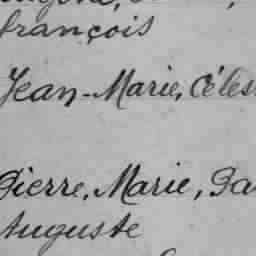 françois
Jean-Marie, Céles
Pierre, Marie,
Auguste